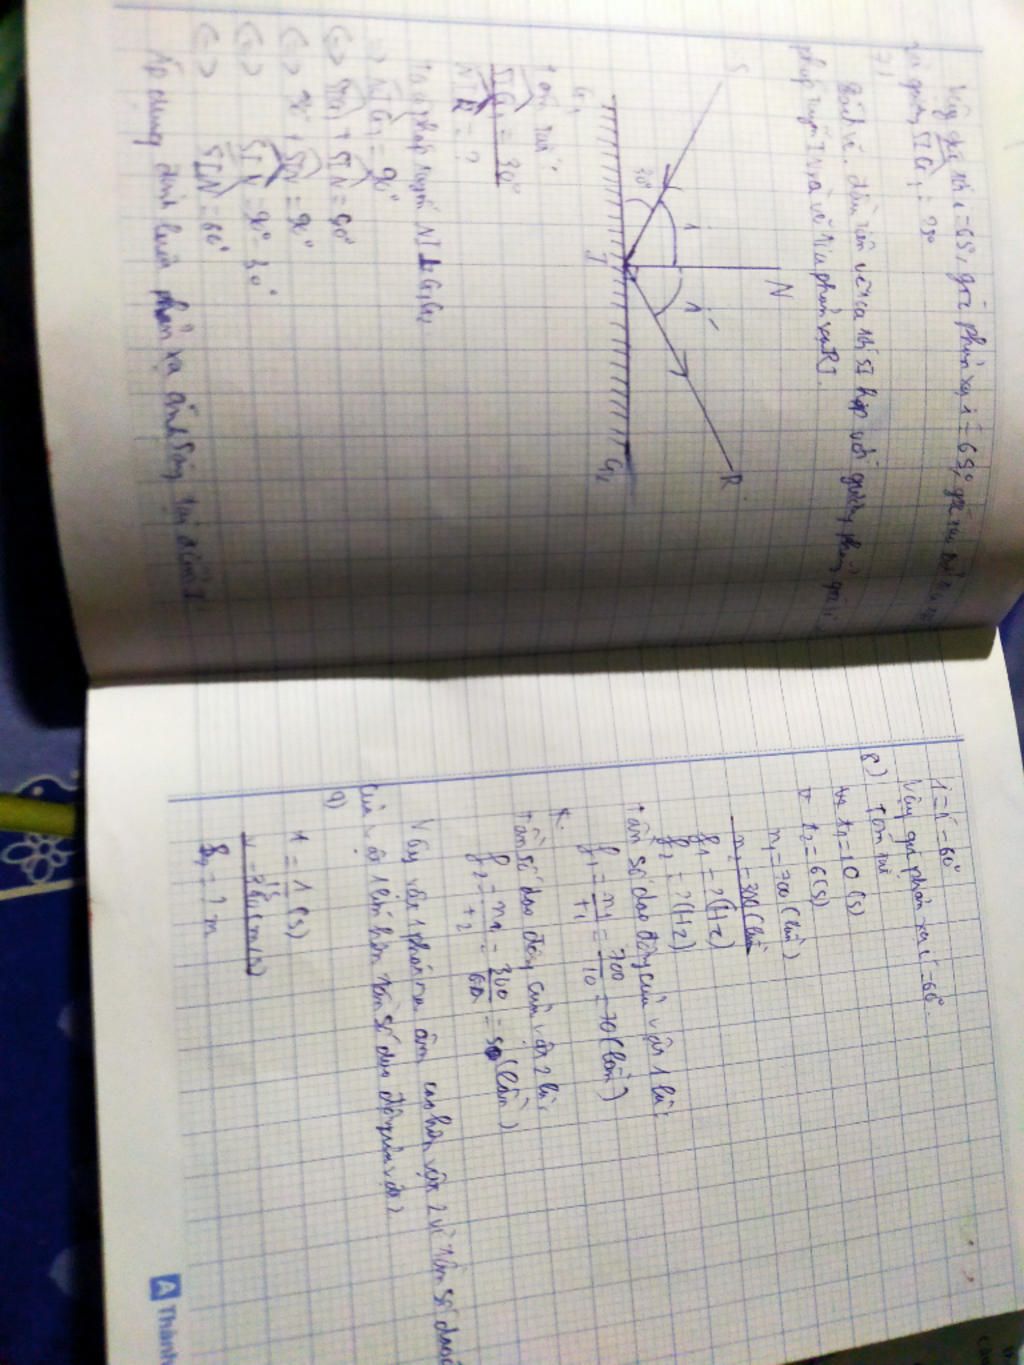 Vậy góc tới i=65°, góc phản xạ i'=65°, góc
và gương SIG₁ = 25°
7)
Bài vẽ: đầu tiên vẽ tia tới SI hợp với gương phẳng góc
pháp tuyến IN và vẽ tia phản xạ RI.
S
N
R
30°
i
i'
I
G₁
G₂
Tóm tắt:
SIG₁ = 30°
NIR = ?
Ta có pháp tuyến NI⊥G₁G₂
=> NIG₁ = 90°
(=) SIG₁ + SIN = 90°
(=) 30° + SIN = 90°
(=) SIN = 90° - 30°
(=) SIN = 60°
Áp dụng định luật phản xạ ánh sáng tại điểm I
i = i' = 60°
Vậy góc phản xạ i' = 60°.
8) Tóm tắt
t₁ = 10 (s)
t₂ = 6 (s)
n₁ = 700 (lần)
n₂ = 300 (lần)
f₁ = ? (Hz)
f₂ = ? (Hz)
tần số dao động của vật 1 là:
f₁ = n₁/t₁ = 700/10 = 70 (lần)
tần số dao động của vật 2 là:
f₂ = n₂/t₂ = 300/6 = 50 (lần)
Vậy vật 1 phát ra âm cao hơn vật 2 vì tần số dao
của vật 1 lớn hơn tần số dao động của vật 2
9)
t = 1 (s)
(m/s)
S = ? m
A Thành